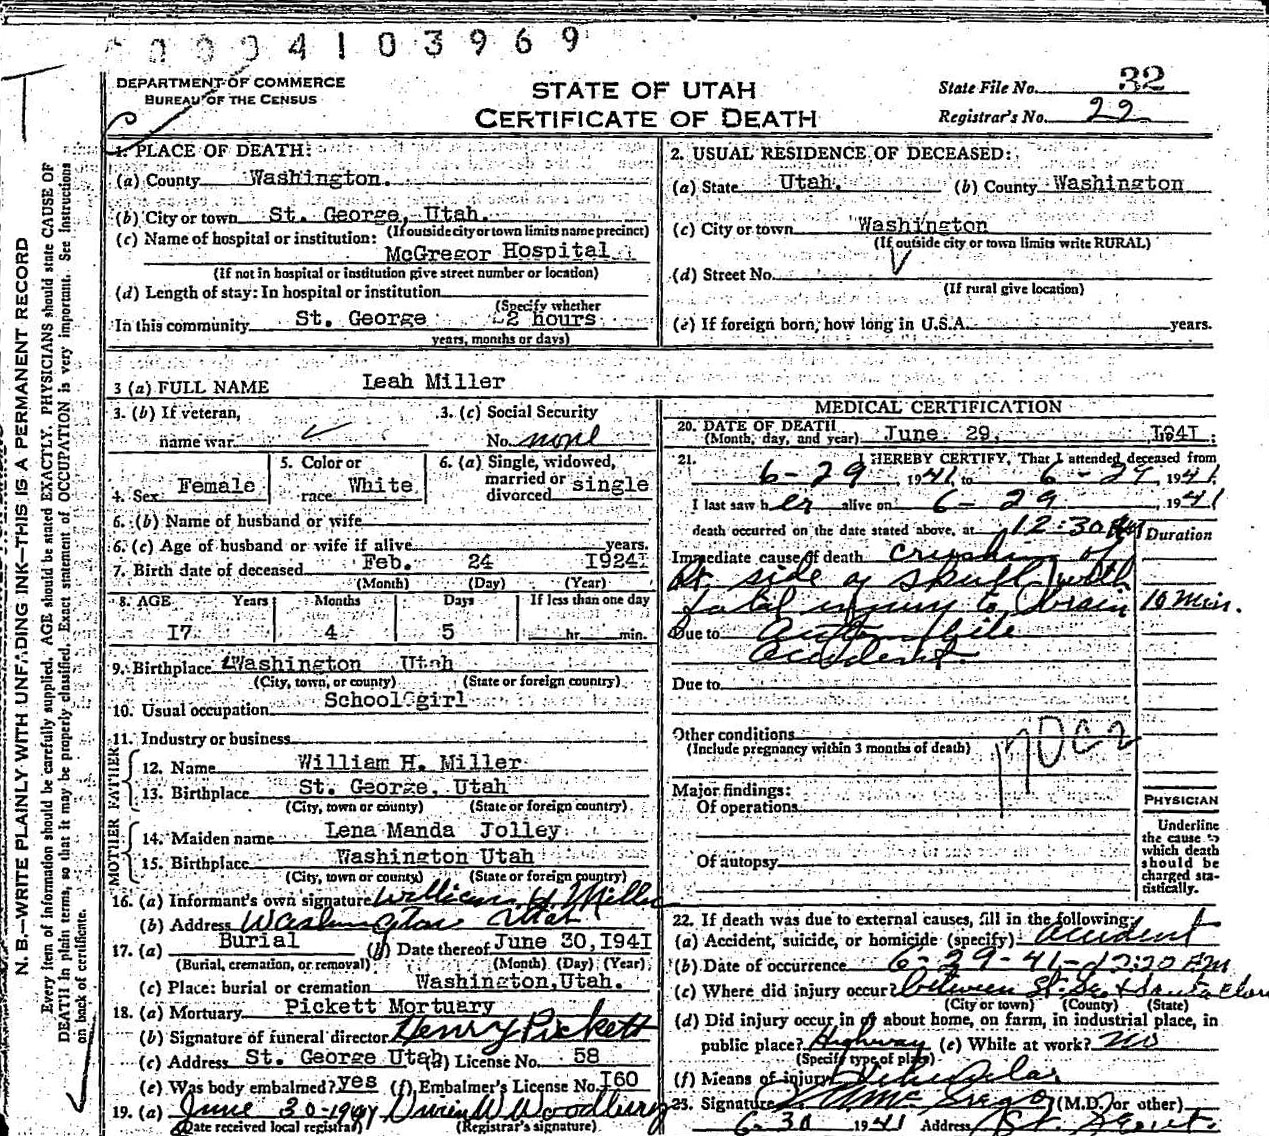 0 0 0 4 1 0 3 9 6 9
DEPARTMENT OF COMMERCE
BUREAU OF THE CENSUS
STATE OF UTAH
CERTIFICATE OF DEATH
State File No. 32
Registrar's No. 22
N. B.—WRITE PLAINLY WITH UNFADING INK—THIS IS A PERMANENT RECORD
Every item of information should be carefully supplied. AGE should be stated EXACTLY. PHYSICIANS should state CAUSE OF
DEATH in plain terms, so that it may be properly classified. Exact statement of OCCUPATION is very important. See instructions
on back of certificate.
1. PLACE OF DEATH:
(a) County Washington.
(b) City or town St. George, Utah.
(If outside city or town limits name precinct)
(c) Name of hospital or institution:
McGregor Hospital
(If not in hospital or institution give street number or location)
(d) Length of stay: In hospital or institution
(Specify whether
In this community St. George 2 hours
years, months or days)
2. USUAL RESIDENCE OF DECEASED:
(a) State Utah. (b) County Washington
(c) City or town Washington
(If outside city or town limits write RURAL)
(d) Street No.
(If rural give location)
(e) If foreign born, how long in U.S.A. years.
3 (a) FULL NAME Leah Miller
3. (b) If veteran,
name war
3. (c) Social Security
No. none
4. Sex Female
5. Color or
race White
6. (a) Single, widowed,
married or
divorced single
6. (b) Name of husband or wife
6. (c) Age of husband or wife if alive years.
7. Birth date of deceased Feb. 24 I924
(Month) (Day) (Year)
8. AGE Years Months Days If less than one day
I7 4 5 hr. min.
9. Birthplace Washington Utah
(City, town, or county) (State or foreign country)
10. Usual occupation School girl
11. Industry or business
FATHER
12. Name William H. Miller
13. Birthplace St. George, Utah
(City, town or county) (State or foreign country)
MOTHER
14. Maiden name Lena Manda Jolley
15. Birthplace Washington Utah
(City, town or county) (State or foreign country)
16. (a) Informant's own signature William H. Miller
(b) Address Washington Utah
17. (a) Burial (b) Date thereof June 30, I94I
(Burial, cremation, or removal) (Month) (Day) (Year)
(c) Place: burial or cremation Washington, Utah.
18. (a) Mortuary Pickett Mortuary
(b) Signature of funeral director Henry Pickett
(c) Address St. George Utah (d) License No. 58
(e) Was body embalmed? yes (f) Embalmer's License No. I60
19. (a) June 30-1941
(Date received local registrar) (Registrar's signature)
MEDICAL CERTIFICATION
20. DATE OF DEATH
(Month, day, and year) June 29, I94I.
21. I HEREBY CERTIFY, That I attended deceased from
6-29, 1941, to 6-29, 1941.
I last saw her alive on 6-29, 1941
death occurred on the date stated above, at 12:30 AM
Duration
Immediate cause of death crushing of
Rt. side of skull with
fatal injury to brain 10 Min.
Due to Automobile
accident.
Due to
Other conditions
(Include pregnancy within 3 months of death)
Major findings:
Of operations
Of autopsy
PHYSICIAN
Underline
the cause to
which death
should be
charged sta-
tistically.
22. If death was due to external causes, fill in the following:
(a) Accident, suicide, or homicide (specify) Accident
(b) Date of occurrence 6-29-41-12:20 AM
(c) Where did injury occur? between St. Geo & Santa Clara
(City or town) (County) (State)
(d) Did injury occur in or about home, on farm, in industrial place, in
public place? Highway (e) While at work? no
(Specify type of place)
(f) Means of injury Vehicular
23. Signature McGregor (M.D. or other)
6-30 1941 Address St. George